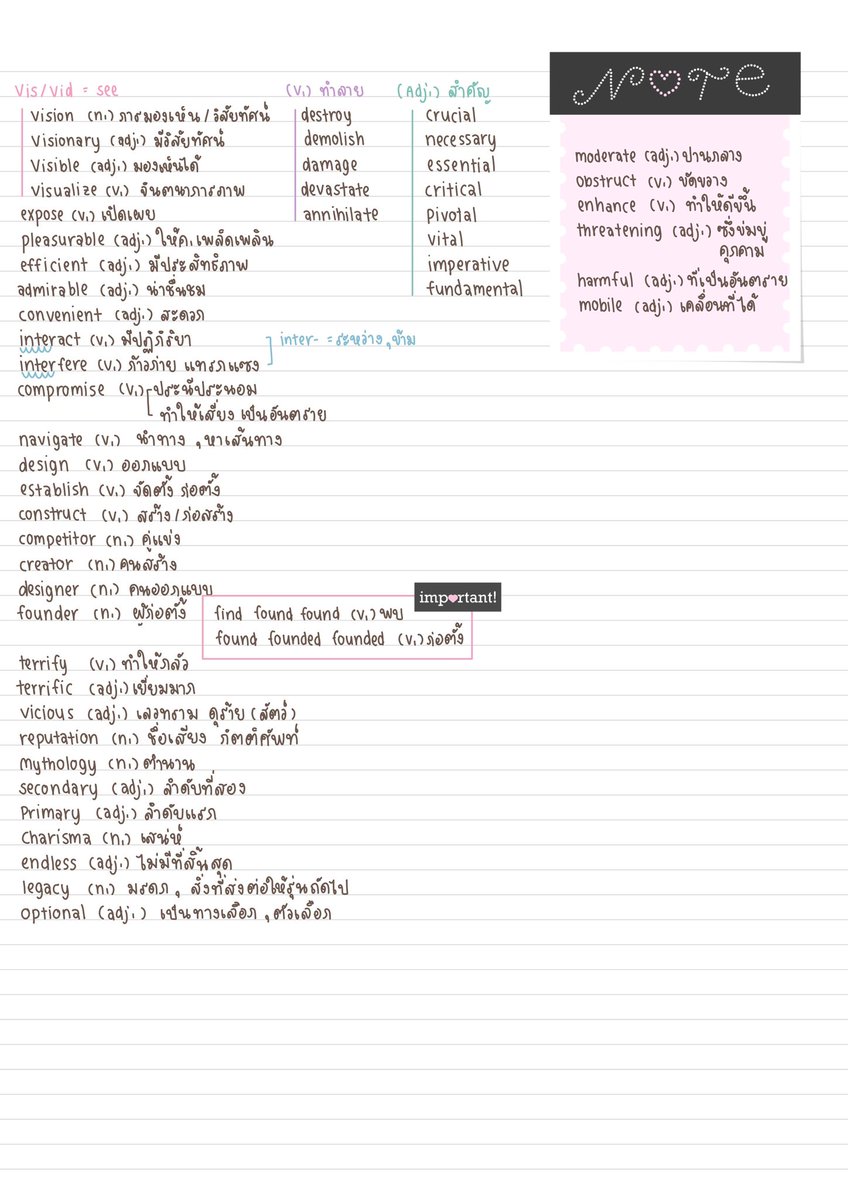 Vis/Vid = see
Vision (n.) การมองเห็น / วิสัยทัศน์
Visionary (adj.) มีวิสัยทัศน์
Visible (adj.) มองเห็นได้
Visualize (v.) จินตนาการภาพ
expose (v.) เปิดเผย
pleasurable (adj.) ให้ค.เพลิดเพลิน
efficient (adj.) มีประสิทธิภาพ
admirable (adj.) น่าชื่นชม
convenient (adj.) สะดวก
interact (v.) มีปฏิกิริยา
interfere (v.) ก้าวก่าย แทรกแซง
inter- = ระหว่าง , ข้าม
compromise (v.) ประนีประนอม
ทำให้เสี่ยง เป็นอันตราย
navigate (v.) นำทาง , หาเส้นทาง
design (v.) ออกแบบ
establish (v.) จัดตั้ง ก่อตั้ง
construct (v.) สร้าง / ก่อสร้าง
competitor (n.) คู่แข่ง
creator (n.) คนสร้าง
designer (n.) คนออกแบบ
founder (n.) ผู้ก่อตั้ง
important!
find found found (v.) พบ
found founded founded (v.) ก่อตั้ง
terrify (v.) ทำให้กลัว
terrific (adj.) เยี่ยมมาก
vicious (adj.) เลวทราม ดุร้าย (สัตว์)
reputation (n.) ชื่อเสียง กิตติศัพท์
Mythology (n.) ตำนาน
secondary (adj.) ลำดับที่สอง
Primary (adj.) ลำดับแรก
Charisma (n.) เสน่ห์
endless (adj.) ไม่มีที่สิ้นสุด
legacy (n.) มรดก , สิ่งที่ส่งต่อให้รุ่นถัดไป
Optional (adj.) เป็นทางเลือก , ตัวเลือก
(v.) ทำลาย
destroy
demolish
damage
devastate
annihilate
(Adj.) สำคัญ
crucial
necessary
essential
critical
pivotal
vital
imperative
fundamental
NOTE
moderate (adj.) ปานกลาง
obstruct (v.) ขัดขวาง
enhance (v.) ทำให้ดีขึ้น
threatening (adj.) ซึ่งข่มขู่
คุกคาม
harmful (adj.) ที่เป็นอันตราย
mobile (adj.) เคลื่อนที่ได้